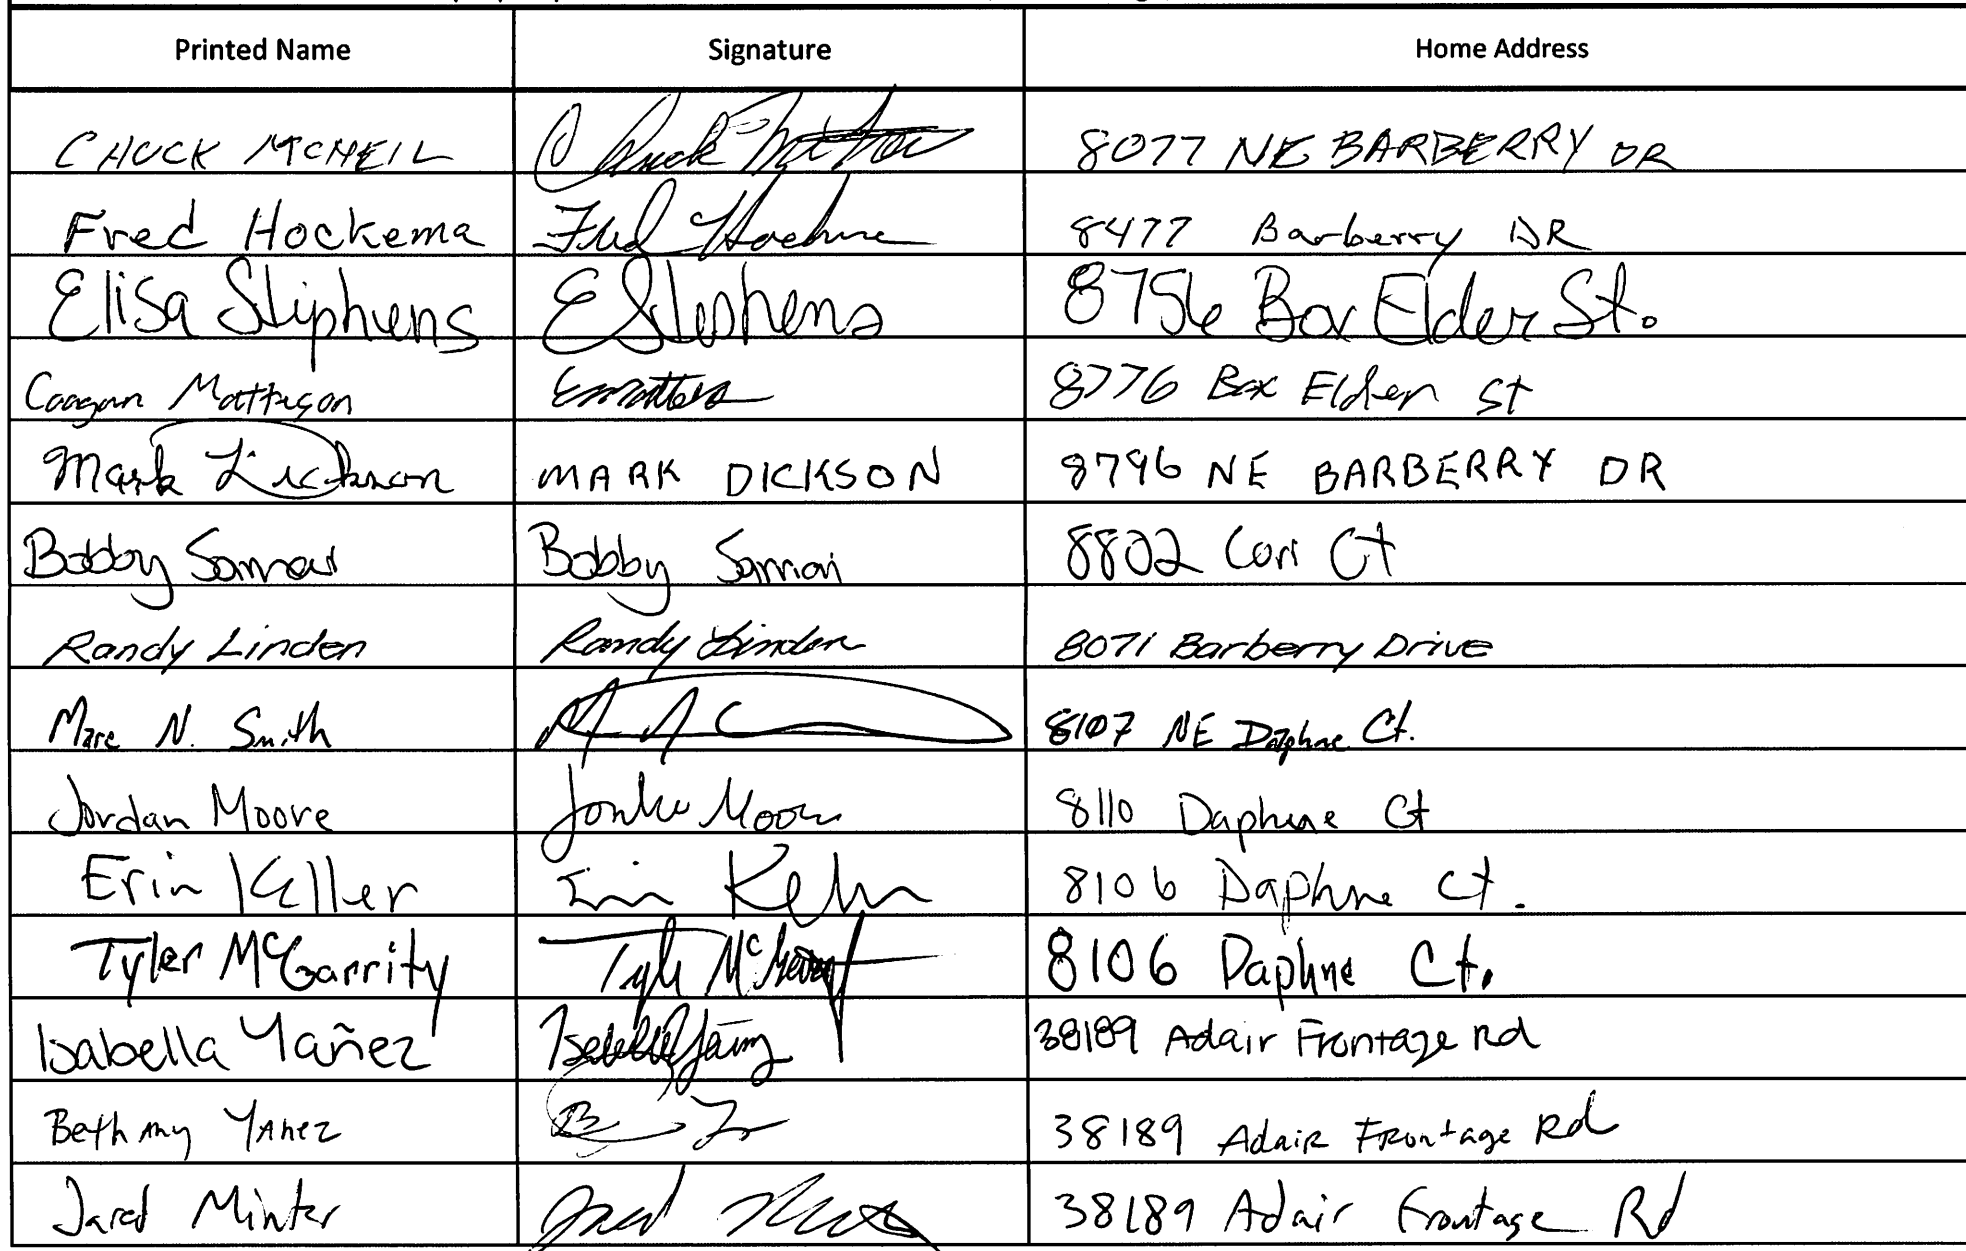 Printed Name Signature Home Address
CHUCK MCNEIL Chuck 8077 NE BARBERRY DR
Fred Hockema Fred Hockema 8477 Barberry DR
Elisa Stephens E Stephens 8756 Box Elder St.
Matteson 8776 Box Elder St
Mark Dickson MARK DICKSON 8796 NE BARBERRY DR
Bobby Bobby 8802 Cori Ct
Randy Linden Randy Linden 8071 Barberry Drive
Marc N. Smith 8107 NE Daphne Ct.
Jordan Moore Moore 8110 Daphne Ct
Erin Keller Erin Keller 8106 Daphne Ct.
Tyler McGarrity Tyler McGarrity 8106 Daphne Ct.
Isabella Yañez Isabella Yañez 38189 Adair Frontage Rd
Bethany Yanez 38189 Adair Frontage Rd
Jared Minter Jared 38189 Adair Frontage Rd